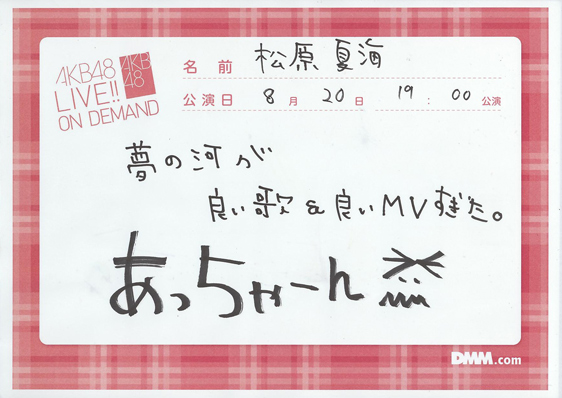 AKB48
LIVE!!
ON DEMAND
AKB
48
名 前 松原夏海
公演日 8月 20日 19:00 公演
夢の河が
良い歌&良いMVすぎた。
あっちゃーん
DMM.com